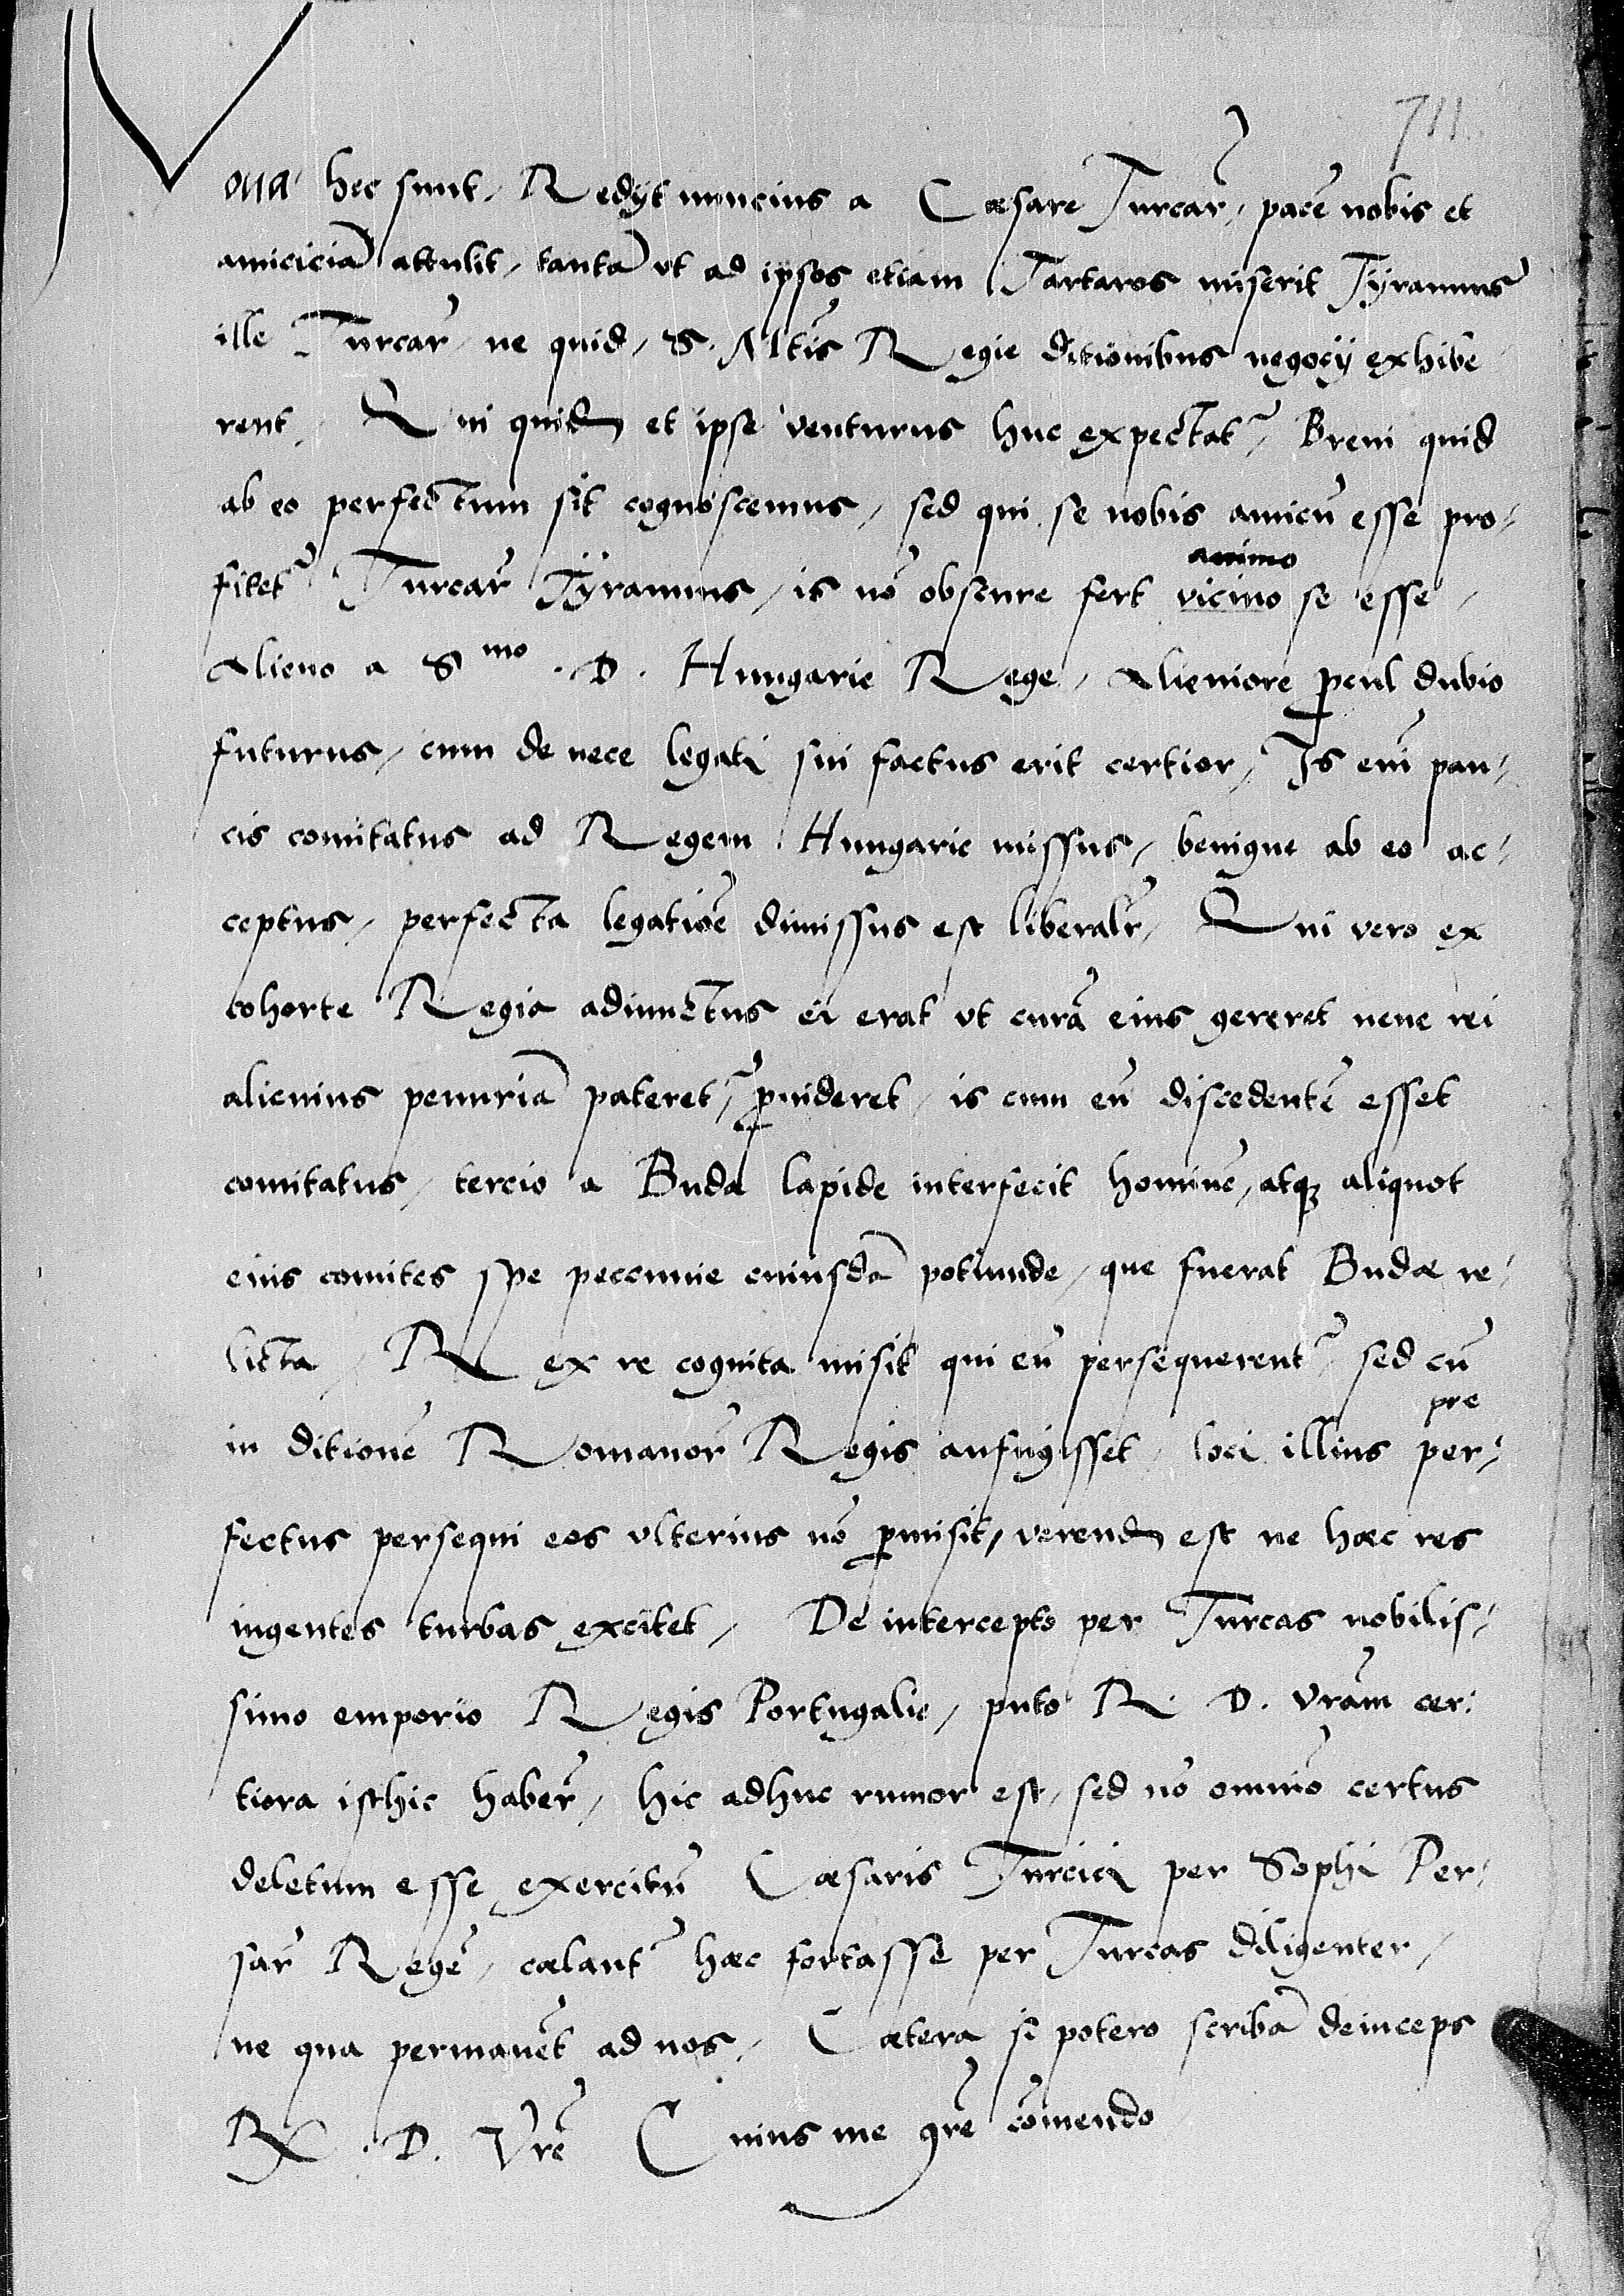 711
Noua hec sunt, Redijt nuncius a Cæsare Turcar̃, pacẽ nobis et
amiciciã attulit, tantã vt ad ipsos etiam Tartaros miserit Tyrannus
ille Turcar̃ ne quid, S. Mltis̃ Regie ditionibus negocij exhibe
rent, Qui quidẽ et ipse venturus huc expectat᷑, Breui quid
ab eo perfectum sit cognoscemus, sed qui se nobis amicũ esse pro/
fitet᷑ Turcar̃ Tÿrannus, is nõ obscure fert vicino se esse,
animo
Alieno a Smo. D. Hungarie Rege, Alieniore ꝓcul dubio
futurus, cum de nece legati sui factus erit certior, Is eni̅ pau/
cis comitatus ad Regem Hungarie missus, benigne ab eo ac/
ceptus, perfecta legatiõe dimissus est liberalr̃, Qui vero ex
cohorte Regia adiunctus ei erat vt curã eius gereret neue rei
alicuius penuriã pateret᷑, ꝓuideret, is cum eũ discedentẽ esset
comitatus, tercio a Buda lapide interfecit hominẽ, atqꝫ aliquot
eius comites spe peccunie cuiusdã potiunde, que fuerat Budæ re/
licta, Rex re cognita misit qui eũ persequerent᷑, sed cũ
pre
in ditionẽ Romanor̃ Regis aufugisset, loci illius per/
fectus persequi eos vlterius nõ ꝑmisit, verendũ est ne hæc res
ingentes turbas excitet, De intercepto per Turcas nobilis/
simo emporio Regis Portugalie, puto R. D. Vrãm cer/
tiora isthic haber̃, hic adhuc rumor est, sed nõ omnĩo certus
deletum esse exercitũ Cæsaris Turcici per Sophi Per/
sar̃ Regẽ, cælant᷑ hæc fortasse per Turcas diligenter,
ne qua permanẽt ad nos, Cætera si potero scribã deinceps
R. D. Vrẽ Cuius me gr̃e cõmendo